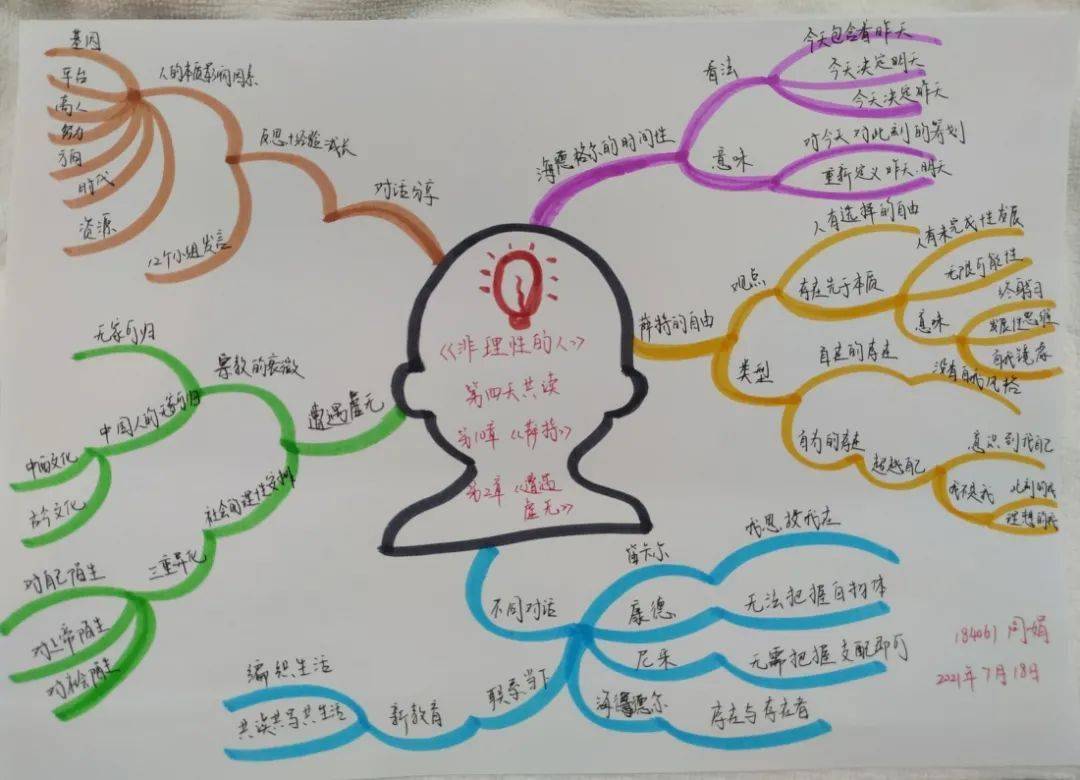 《非理性的人》
第四天共读
第10章《萨特》
第2章《遭遇
虚无》
对话分享
反思+经验=成长
人的本质影响因素
基因
平台
高人
努力
方向
时代
资源
12个小组发言
海德格尔的时间性
看法
今天包含着昨天
今天决定明天
今天决定昨天
意味
对今天 对此刻的筹划
重新定义昨天.明天
萨特的自由
观点
人有选择的自由
存在先于本质
人有未完成性发展
无限可能性
意味
终身学习
发展性思维
类型
自在的存在
没有自我风格
自为的存在
超越自己
意识到我自己
我不是我
此刻的我
理想的我
遭遇虚无
宗教的衰微
无家可归
中国人的无可归
中西文化
古今文化
社会的理性安排
三重异化
对自己陌生
对上帝陌生
对社会陌生
不同对话
笛卡尔
我思故我在
康德
无法把握自物体
尼采
无需把握支配即可
海德尔
存在与存在者
联系当下
新教育
编织生活
共读共写共生活
184061 闫娟
2021年7月18日